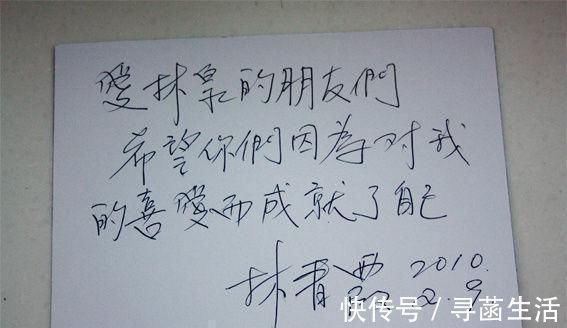 愛林泉的朋友們
希望你們因為对我
的喜愛而成就了自己
林青霞 2010.
2.9.
快传号／寻菡生活